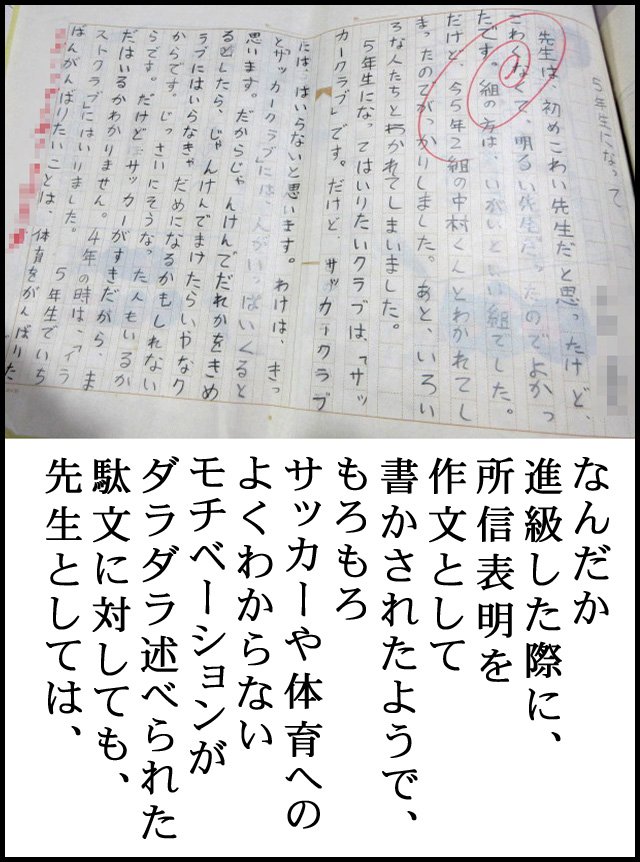 ５年生になって
先生は、初めこわい先生だと思ったけど、
こわくなくて、明るい先生だったのでよかっ
たです。組の方は、いがいといい組でした。
だけど、今5年2組の中村くんとわかれてし
まったのでがっかりしました。あと、いろい
ろな人たちとわかれてしまいました。
５年生になってはいりたいクラブは、「サッ
カークラブ」です。だけど、サッカークラブ
には、はいらないと思います。わけは、きっ
と「サッカークラブ」には、人がいっぱいくると
思います。だからじゃんけんでだれかをきめ
るとしたら、じゃんけんでまけたらいやなク
ラブにはいらなきゃだめになるかもしれない
からです。じっさいにそうなった人もいるか
らです。だけどサッカーがすきだから、ま
だはいるかわかりません。４年の時は、「イラ
ストクラブ」にはいりました。５年生でいち
ばんがんばりたいことは、体育をがんばりた
なんだか
進級した際に、
所信表明を
作文として
書かされたようで、
もろもろ
サッカーや体育への
よくわからない
モチベーションが
ダラダラ述べられた
駄文に対しても、
先生としては、